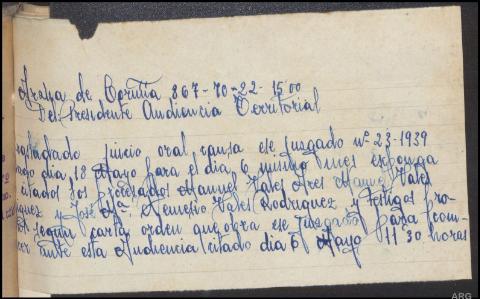 de Coruña 867-70-22-1500
Del Presidente Audiencia Territorial
juicio oral causa ese juzgado nº 23-1939
dia 18 Mayo para el dia 6 mismo mes
citados los procesados Manuel Vales Ares Manuel Vales
y José Mª. Nemesio Vales Rodriguez y testigos pro-
segun carta orden que obra ese juzgado para com-
ante esta Audiencia citado dia 6 Mayo 11 30 horas
ARG